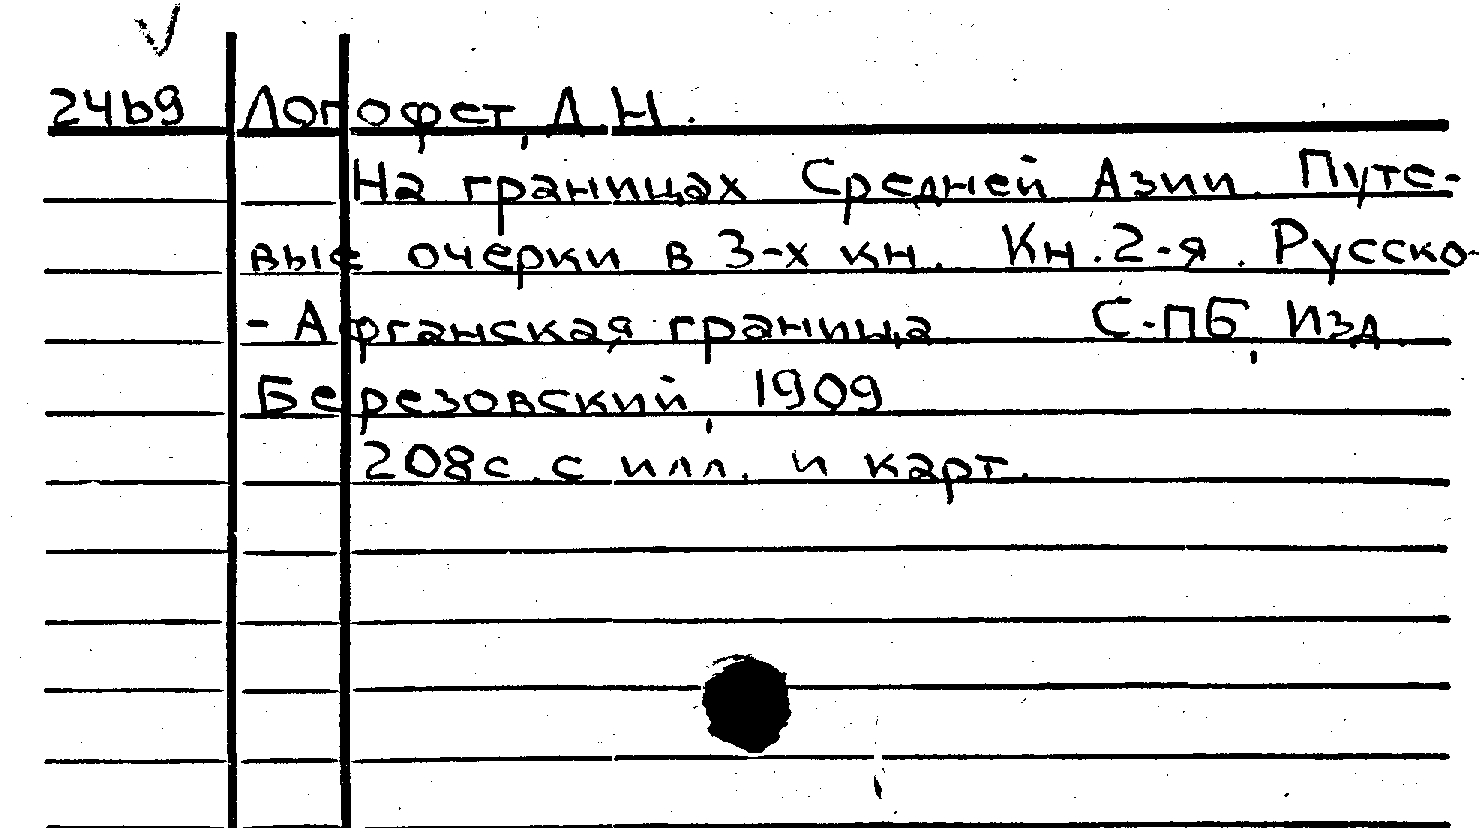 2469 Логофет, Д Н.
На границах Средней Азии. Путе-
вые очерки в 3-х кн. Кн. 2-я. Русско-
- Афганская граница С-ПБ, Изд.
Березовский, 1909
208с. с илл. и карт.